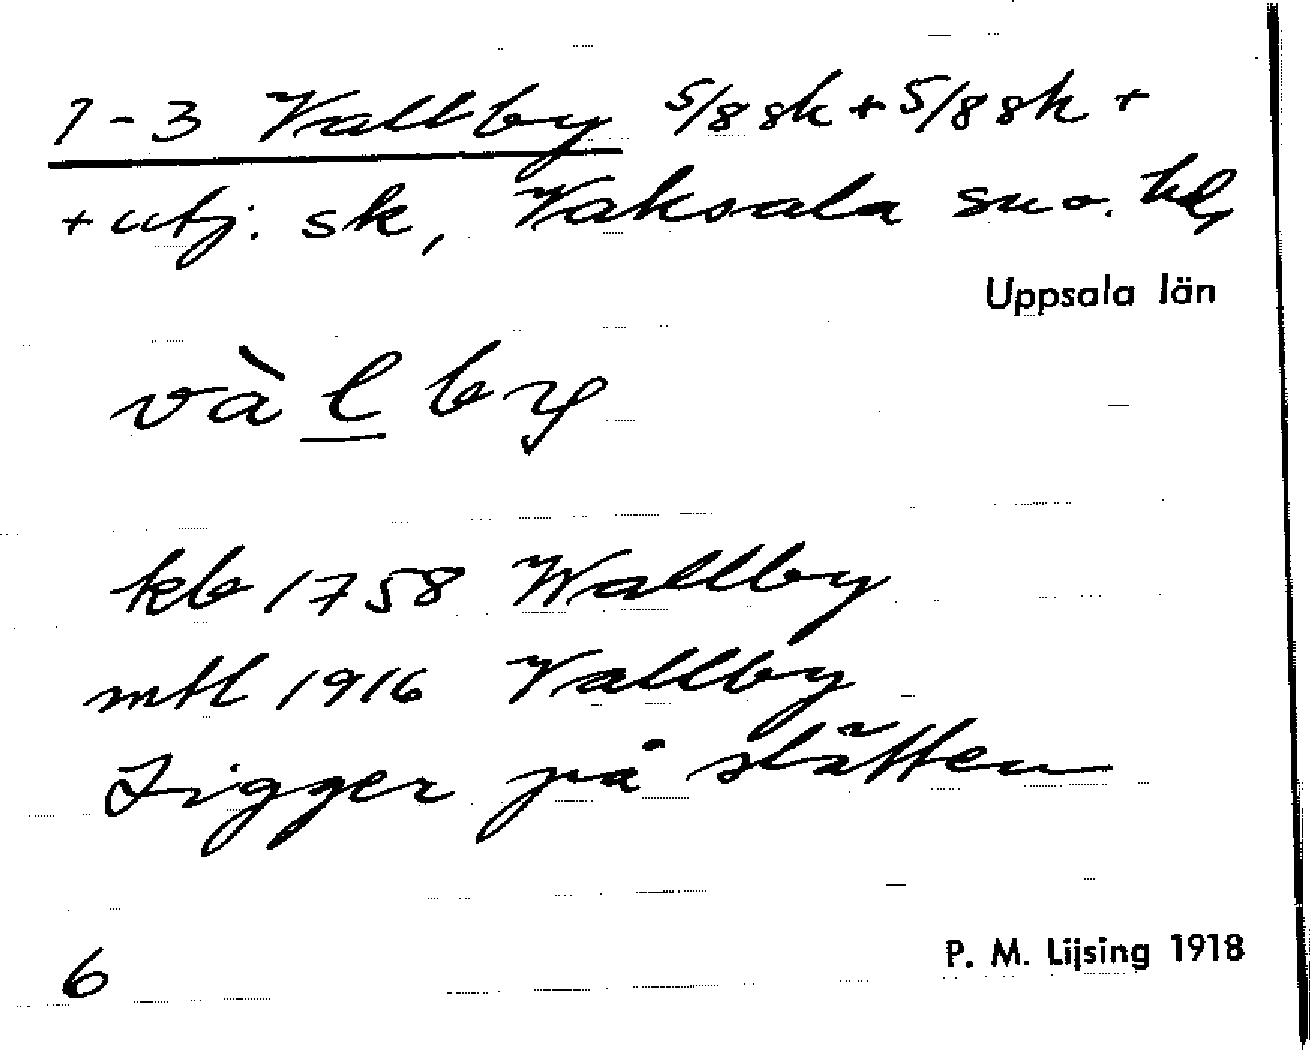 1-3 Vallby 5/8 sk + 5/8 sk +
+ utj. sk, Vaksala sn o. hd,
Uppsala län
vàlby
kb 1758 Wallby
mtl 1916 Vallby
Ligger på slätten
6
P. M. Lijsing 1918